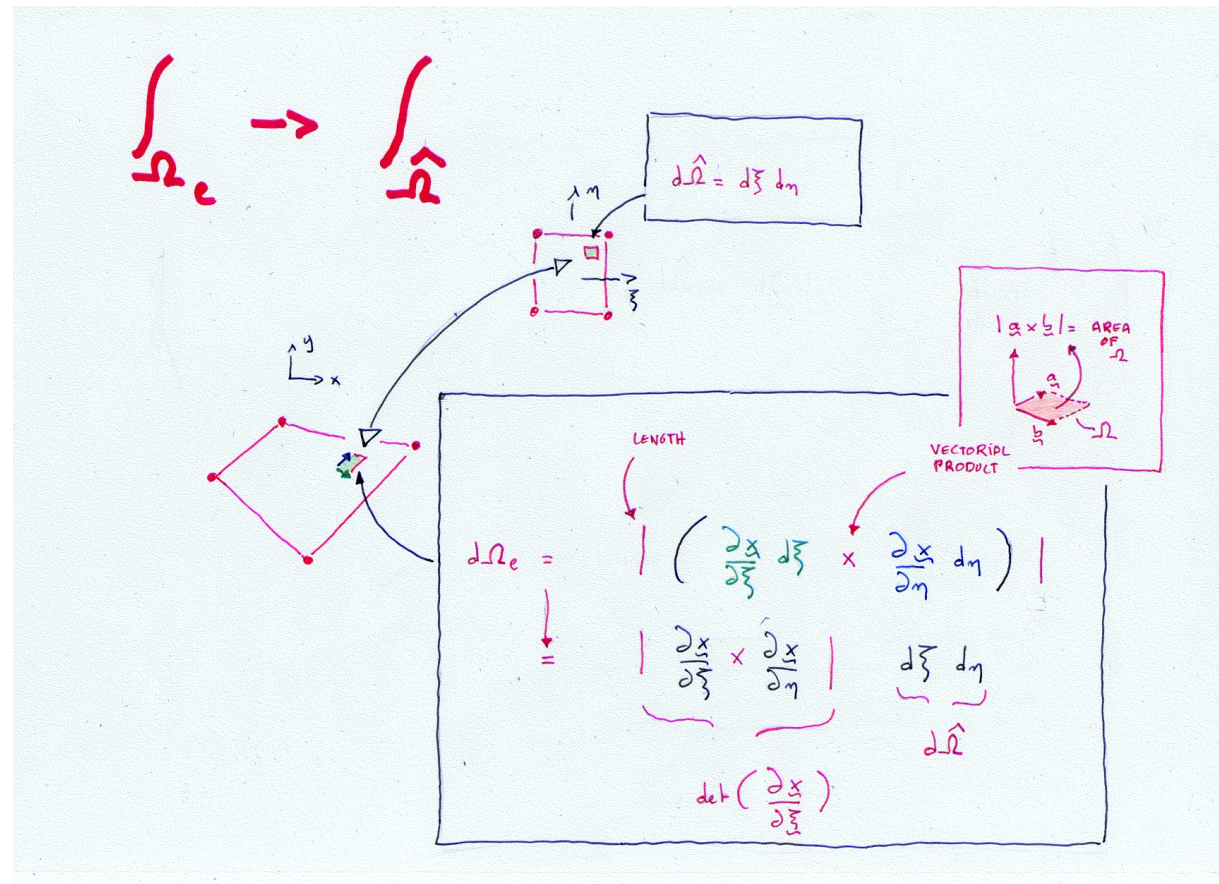 ∫_Ωe → ∫_Ω̂
dΩ̂ = dξ dη
η
ξ
y
x
|a̲ × b̲| = AREA
OF
Ω
a̲
b̲
Ω
LENGTH
VECTORIAL
PRODUCT
dΩe = | ( ∂x̲/∂ξ dξ × ∂x̲/∂η dη ) |
= | ∂x̲/∂ξ × ∂x̲/∂η | dξ dη
dΩ̂
det ( ∂x̲/∂ξ̲ )